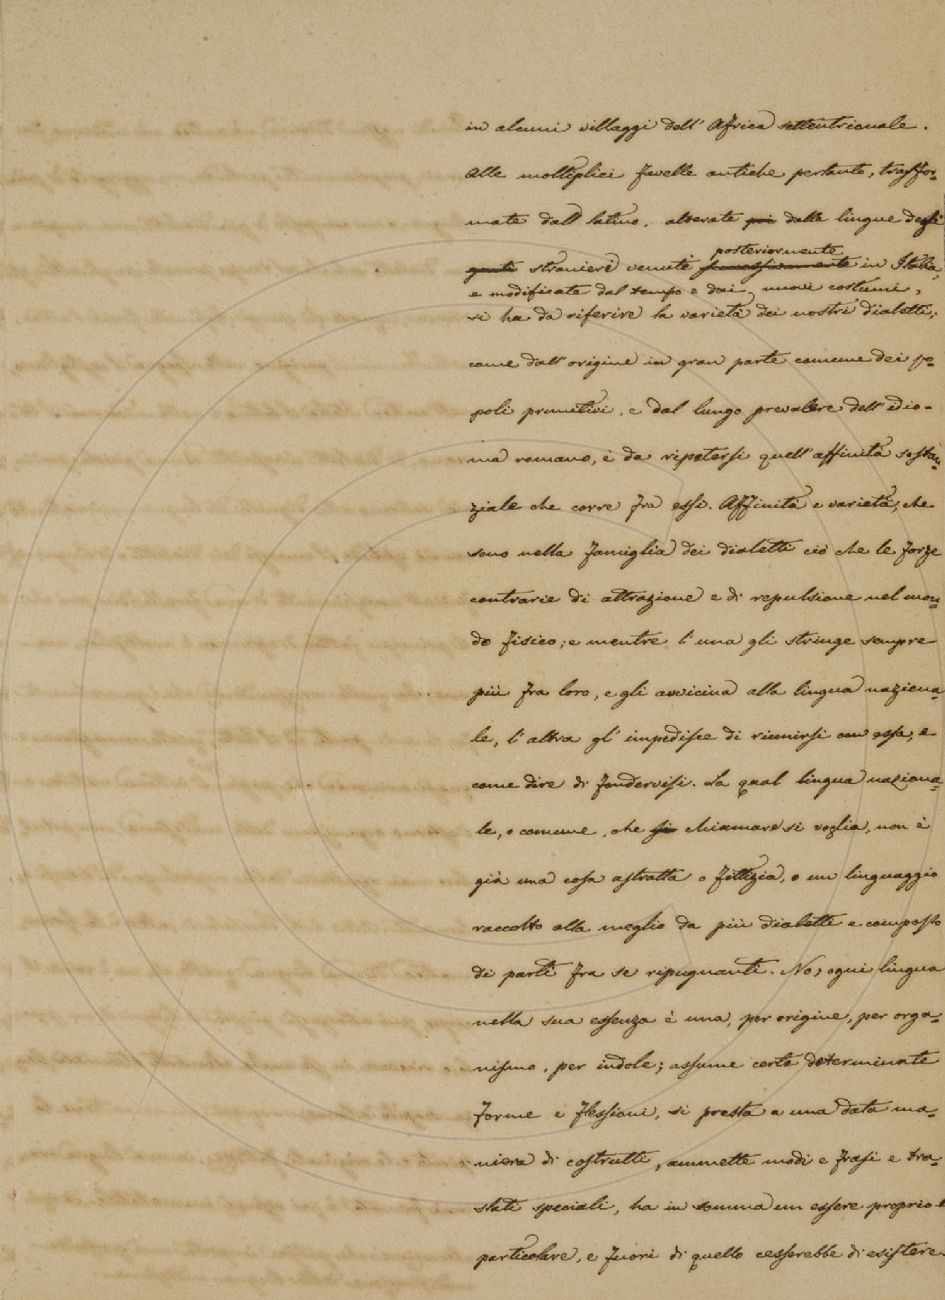 in alcuni villaggi dell' Africa settentrionale.
Alle molteplici favelle antiche pertanto, trasfor=
mate dal latino, alterate poi dalle lingue degli
genti straniere venute posteriormente in Italia,
e modificate dal tempo e dai nuovi costumi,
si ha da riferire la varietà dei nostri dialetti;
come dall' origine in gran parte comune dei po=
poli primitivi, e dal lungo prevalere dell' idio=
ma romano, è da ripetersi quell' affinità sostan=
ziale che corre fra essi. Affinità e varietà, che
sono nella famiglia dei dialetti ciò che le forze
contrarie di attrazione e di repulsione nel mon=
do fisico; e mentre l' una gli stringe sempre
più fra loro, e gli avvicina alla lingua naziona=
le, l' altra gl' impedisce di riunirsi con essa, e
come dire di fondervisi. La qual lingua naziona=
le, o comune, che si chiamare si voglia, non è
già una cosa astratta o fittizia, o un linguaggio
raccolto alla meglio da più dialetti e composto
di parti fra se ripugnanti. No; ogni lingua
nella sua essenza è una, per origine, per orga=
nismo, per indole; assume certe determinate
forme e flessioni, si presta a una data ma=
niera di costrutti, ammette modi e frasi e tra=
slati speciali, ha in somma un essere proprio e
particolare, e fuori di quello cesserebbe di esistere.